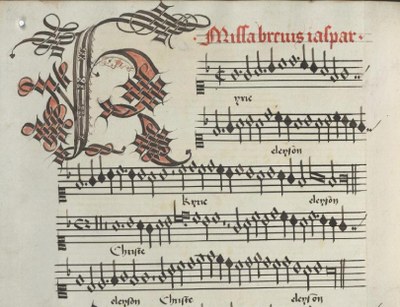 Missa brevis iaspar
K yrie
eleyson
kyrie eleyson
Christe
eleyson Christe eleyson